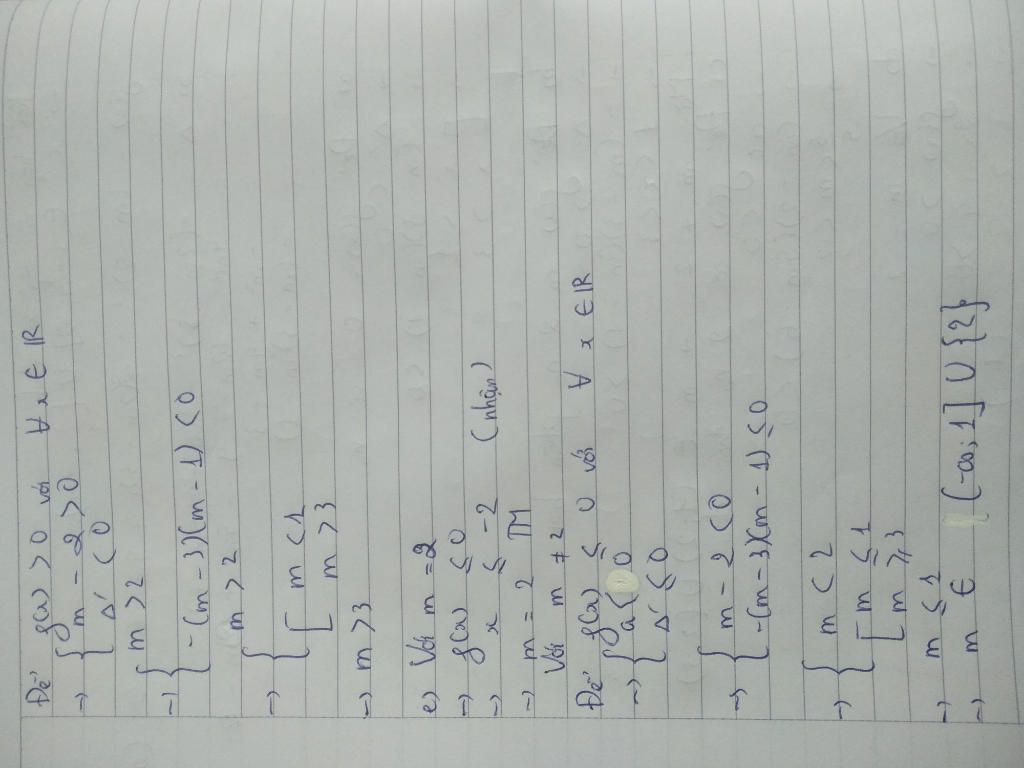 Để g(x) > 0 với ∀ x ∈ ℝ
→ { m - 2 > 0
Δ' < 0
→ { m > 2
-(m - 3)(m - 1) < 0
→ { m > 2
[ m < 1
m > 3
→ m > 3
e) Với m = 2
→ g(x) ≤ 0
→ x ≤ -2 (nhận)
→ m = 2 TM
Với m ≠ 2
Để g(x) ≤ 0 với ∀ x ∈ ℝ
→ { a < 0
Δ' ≤ 0
→ { m - 2 < 0
-(m - 3)(m - 1) ≤ 0
→ { m < 2
[ m ≤ 1
m ≥ 3
→ m ≤ 1
→ m ∈ (-∞; 1] ∪ {2}